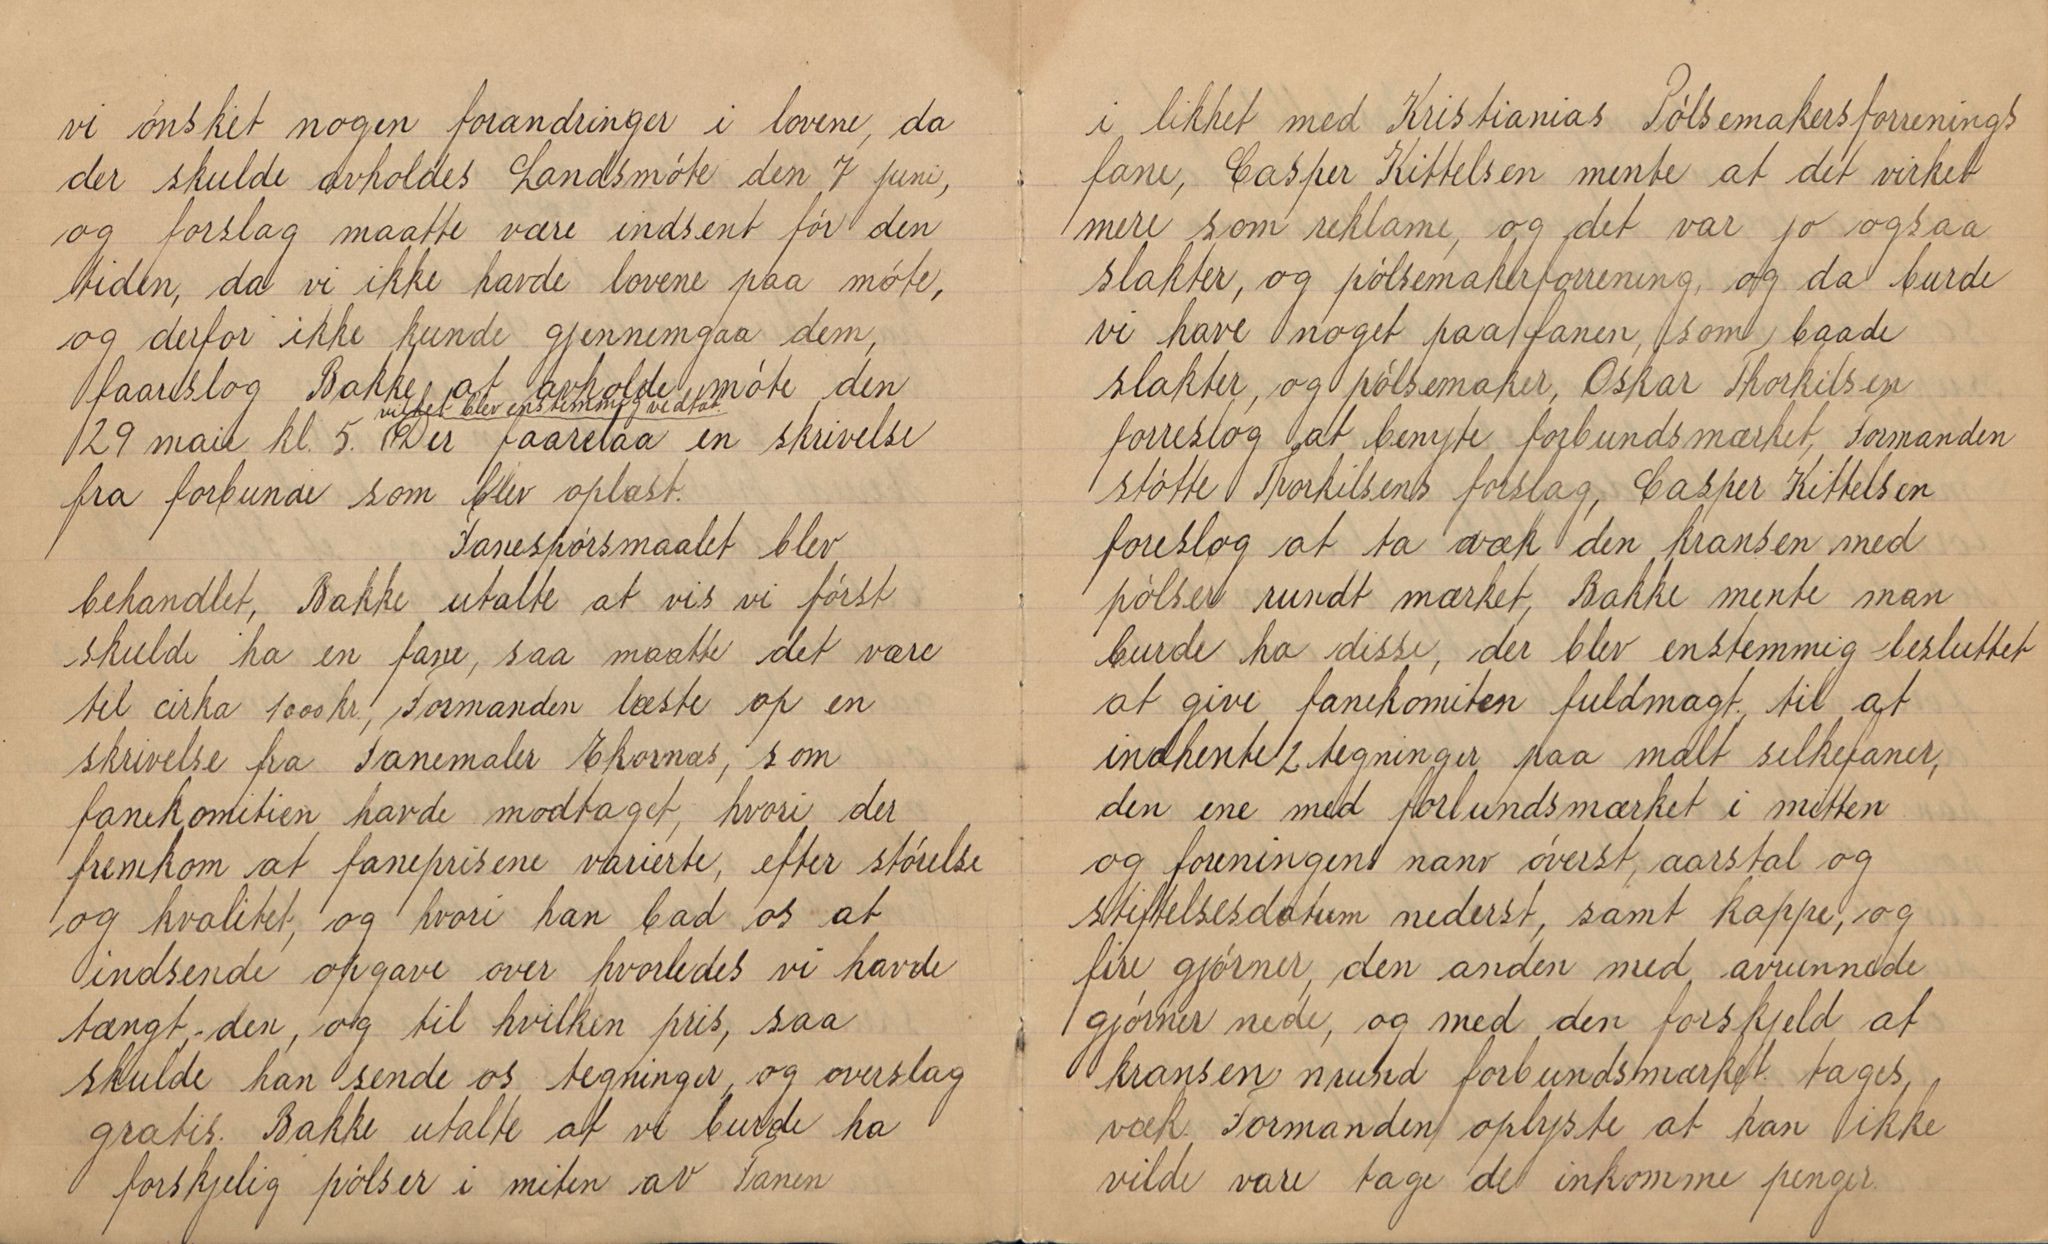 vi ónsket nogen forandringer i lovene, da
der skulde avholdes Landsmóte den 7 juni,
og forslag maatte være indsent fór den
tiden, da vi ikke havde lovene paa móte,
og derfor ikke kunde gjennemgaa dem,
faareslog Bakke at avholde móte den
vilket blev enstemmig vedtat.
29 maie kl. 5. Der faarelaa en skrivelse
fra forbunde som blev oplæst.
Fanespórsmaalet blev
behandlet, Bakke utalte at vis vi fórst
skulde ha en fane, saa maatte det være
til cirka 1000 kr., Formanden læste op en
skrivelse fra Fanemaler Ekornæs, som
fanekomitien havde modtaget, hvori der
fremkom at faneprisene varierte, efter stórelse
og kvalitet, og hvori han bad os at
indsende opgave over hvorledes vi havde
tængt-den, og til hvilken pris, saa
skulde han sende os tegninger, og overslag
gratis. Bakke utalte at vi burde ha
forskjelig pólser i miten av Fanen
i likhet med Kristianias Pólsemakersforrenings
fane, Casper Kittelsen mente at det virket
mere som reklame, og det var jo ogsaa
slakter, og pólsemakerforrening, og da burde
vi have noget paa fanen, som baade
slakter, og pólsemaker, Oskar Thorkilsen
forreslog at benyte forbundsmærket, Formanden
stótte Thorkilsens forslag, Casper Kittelsen
foreslog at ta væk den kransen med
pólser rundt mærket, Bakke mente man
burde ha disse, der blev enstemmig besluttet
at give fanekomiten fuldmagt til at
indhente 2 tegninger paa malt silkefaner,
den ene med forbundsmærket i mitten
og foreningens nanv óverst, aarstal og
stiftelsesdatum nederst, samt kappe, og
fire gjórner, den anden med avrunnede
gjórner nede, og med den forskjeld at
kransen nrund forbundsmærket tages
væk. Formanden oplyste at han ikke
vilde vare tage de inkomme penger.